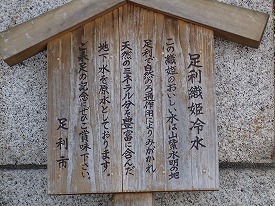 足利織姫冷水
この織姫のおいしい水は山紫水明の地
足利で自然のろ過作用によりみがかれ
天然のミネラル分を豊富に含んだ
地下水を原水としております。
ご来足の記念にぜひご賞味下さい。
足利市